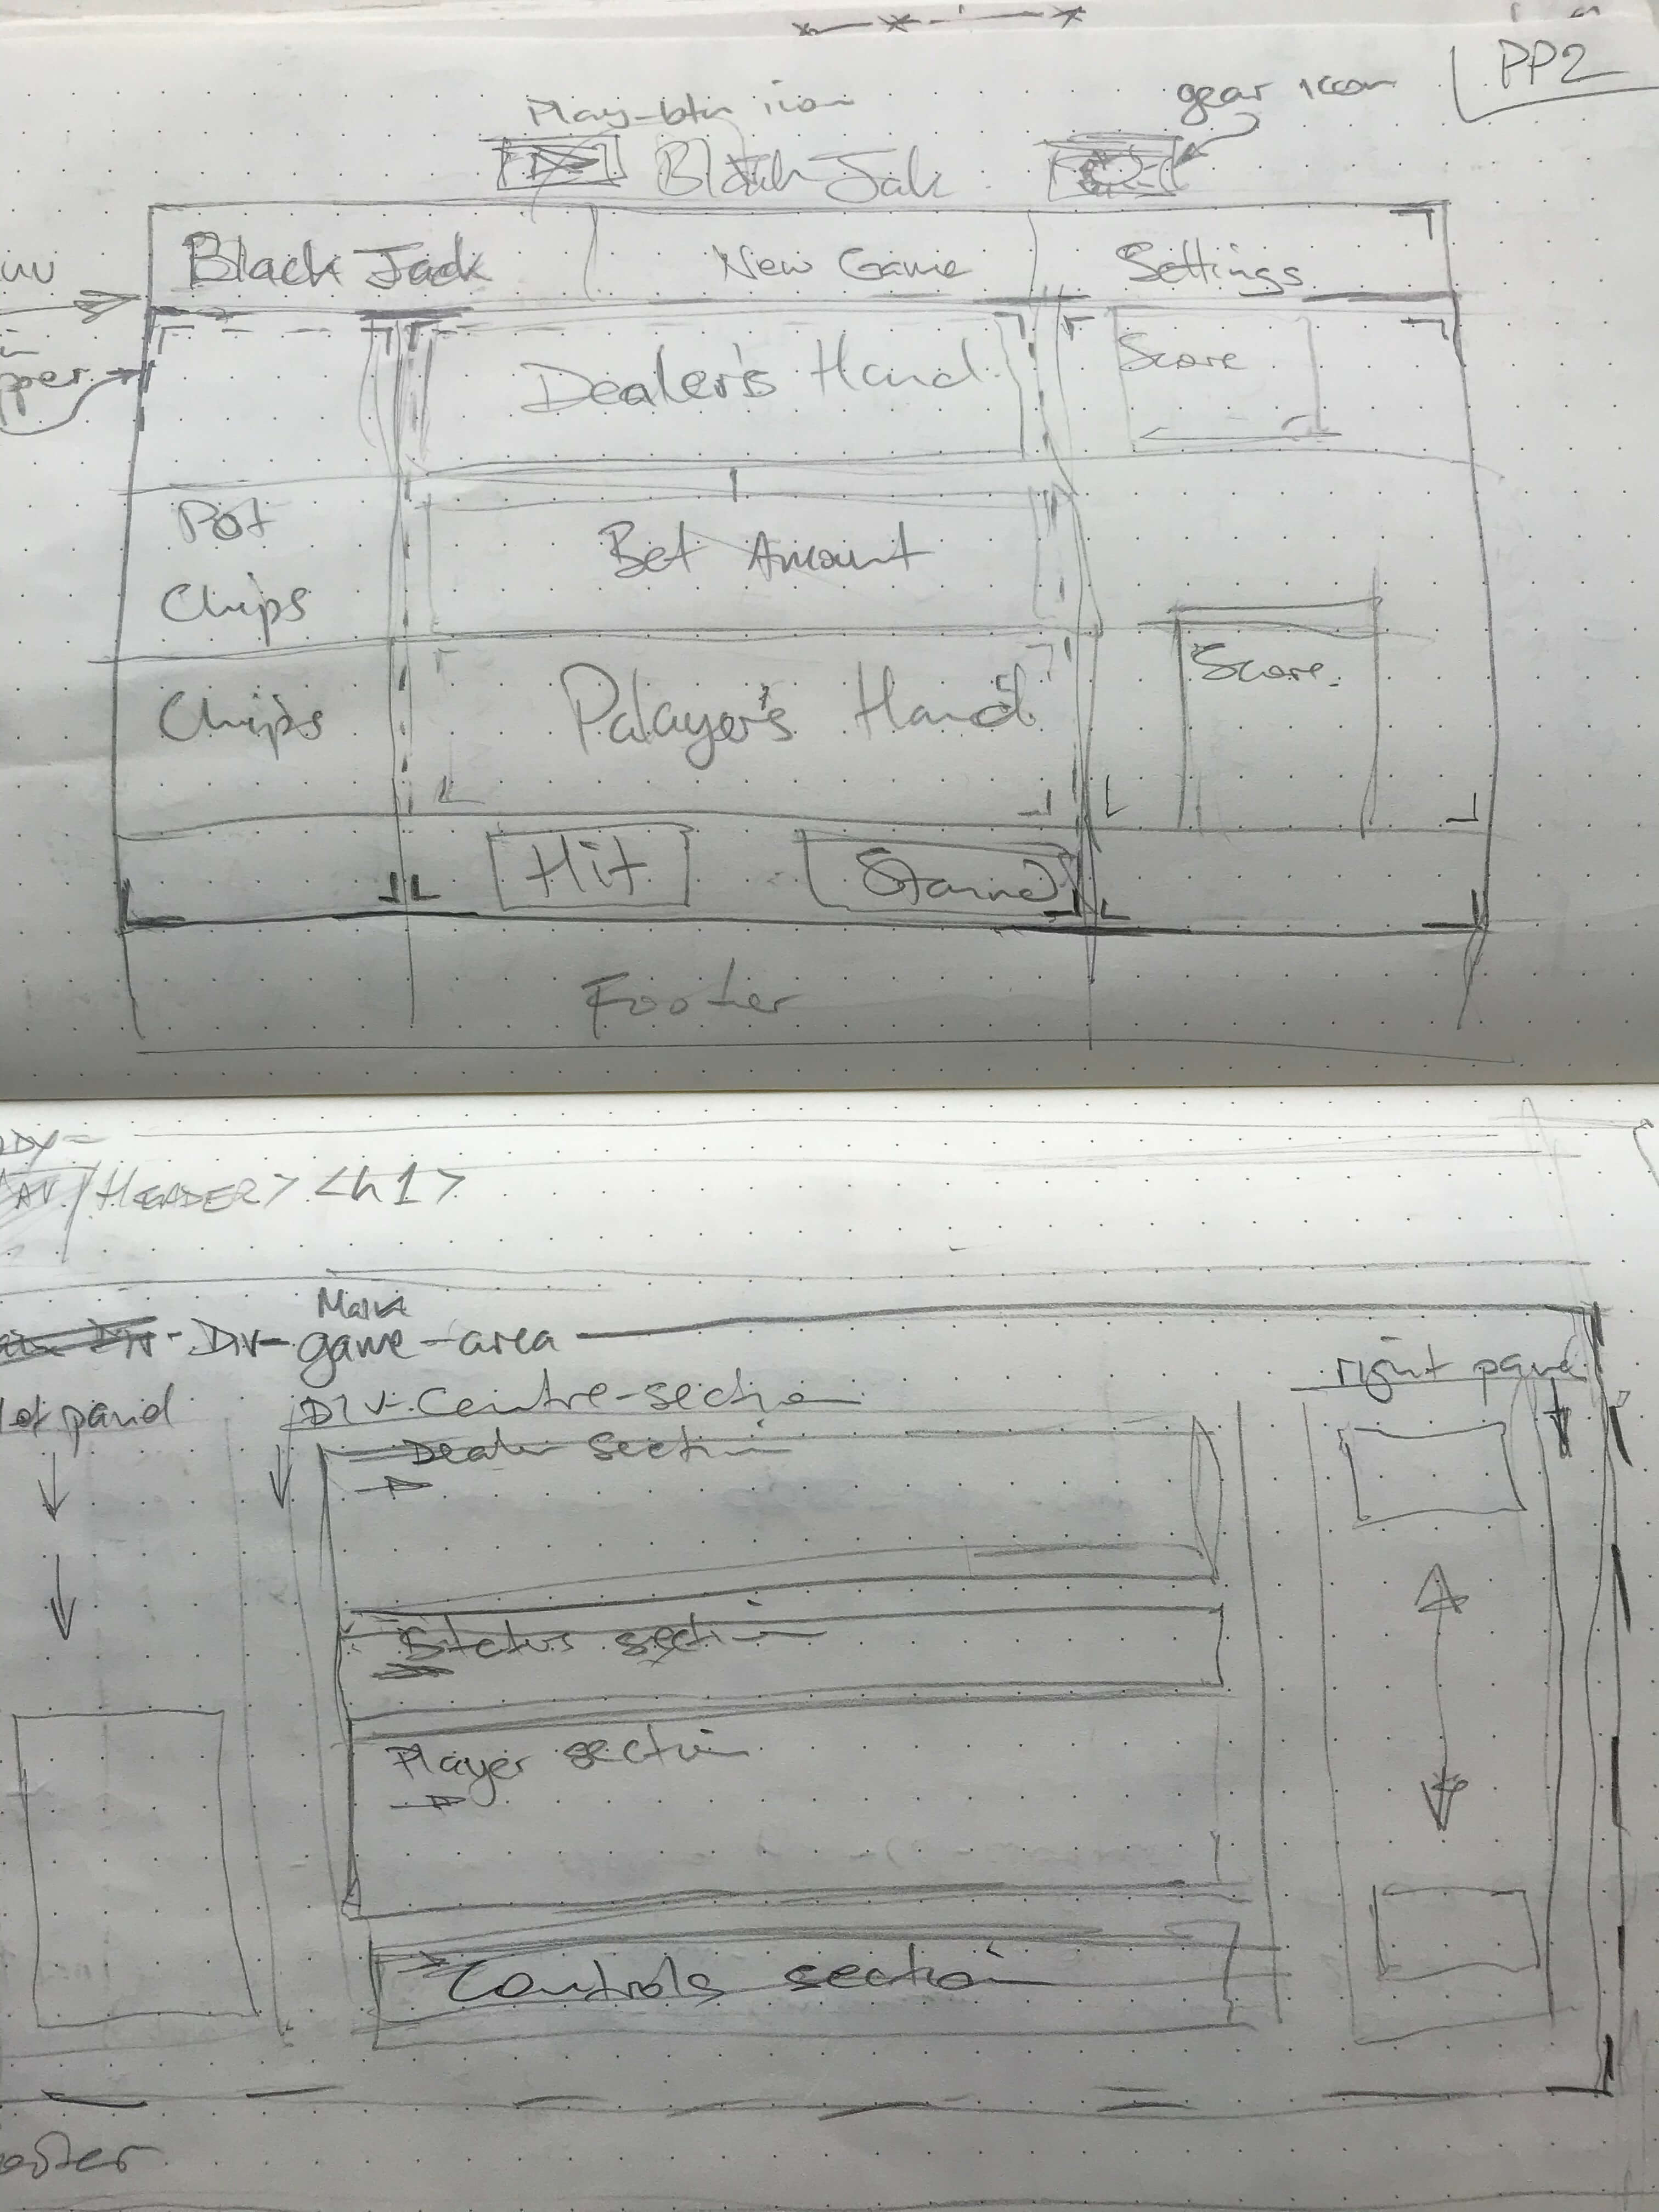 PP2
Play-btn icon
gear icon
Black Jak
Black Jack New Game Settings
Dealer's Hand Score
Pot
Chips
Bet Amount
Chips
Palayer's Hand Score
Hit Stand
Footer
HEADER> <h1>
Main
Div-game-area
right panel
DIV-Centre-section
Dealer section
Status section
Player section
Controls section